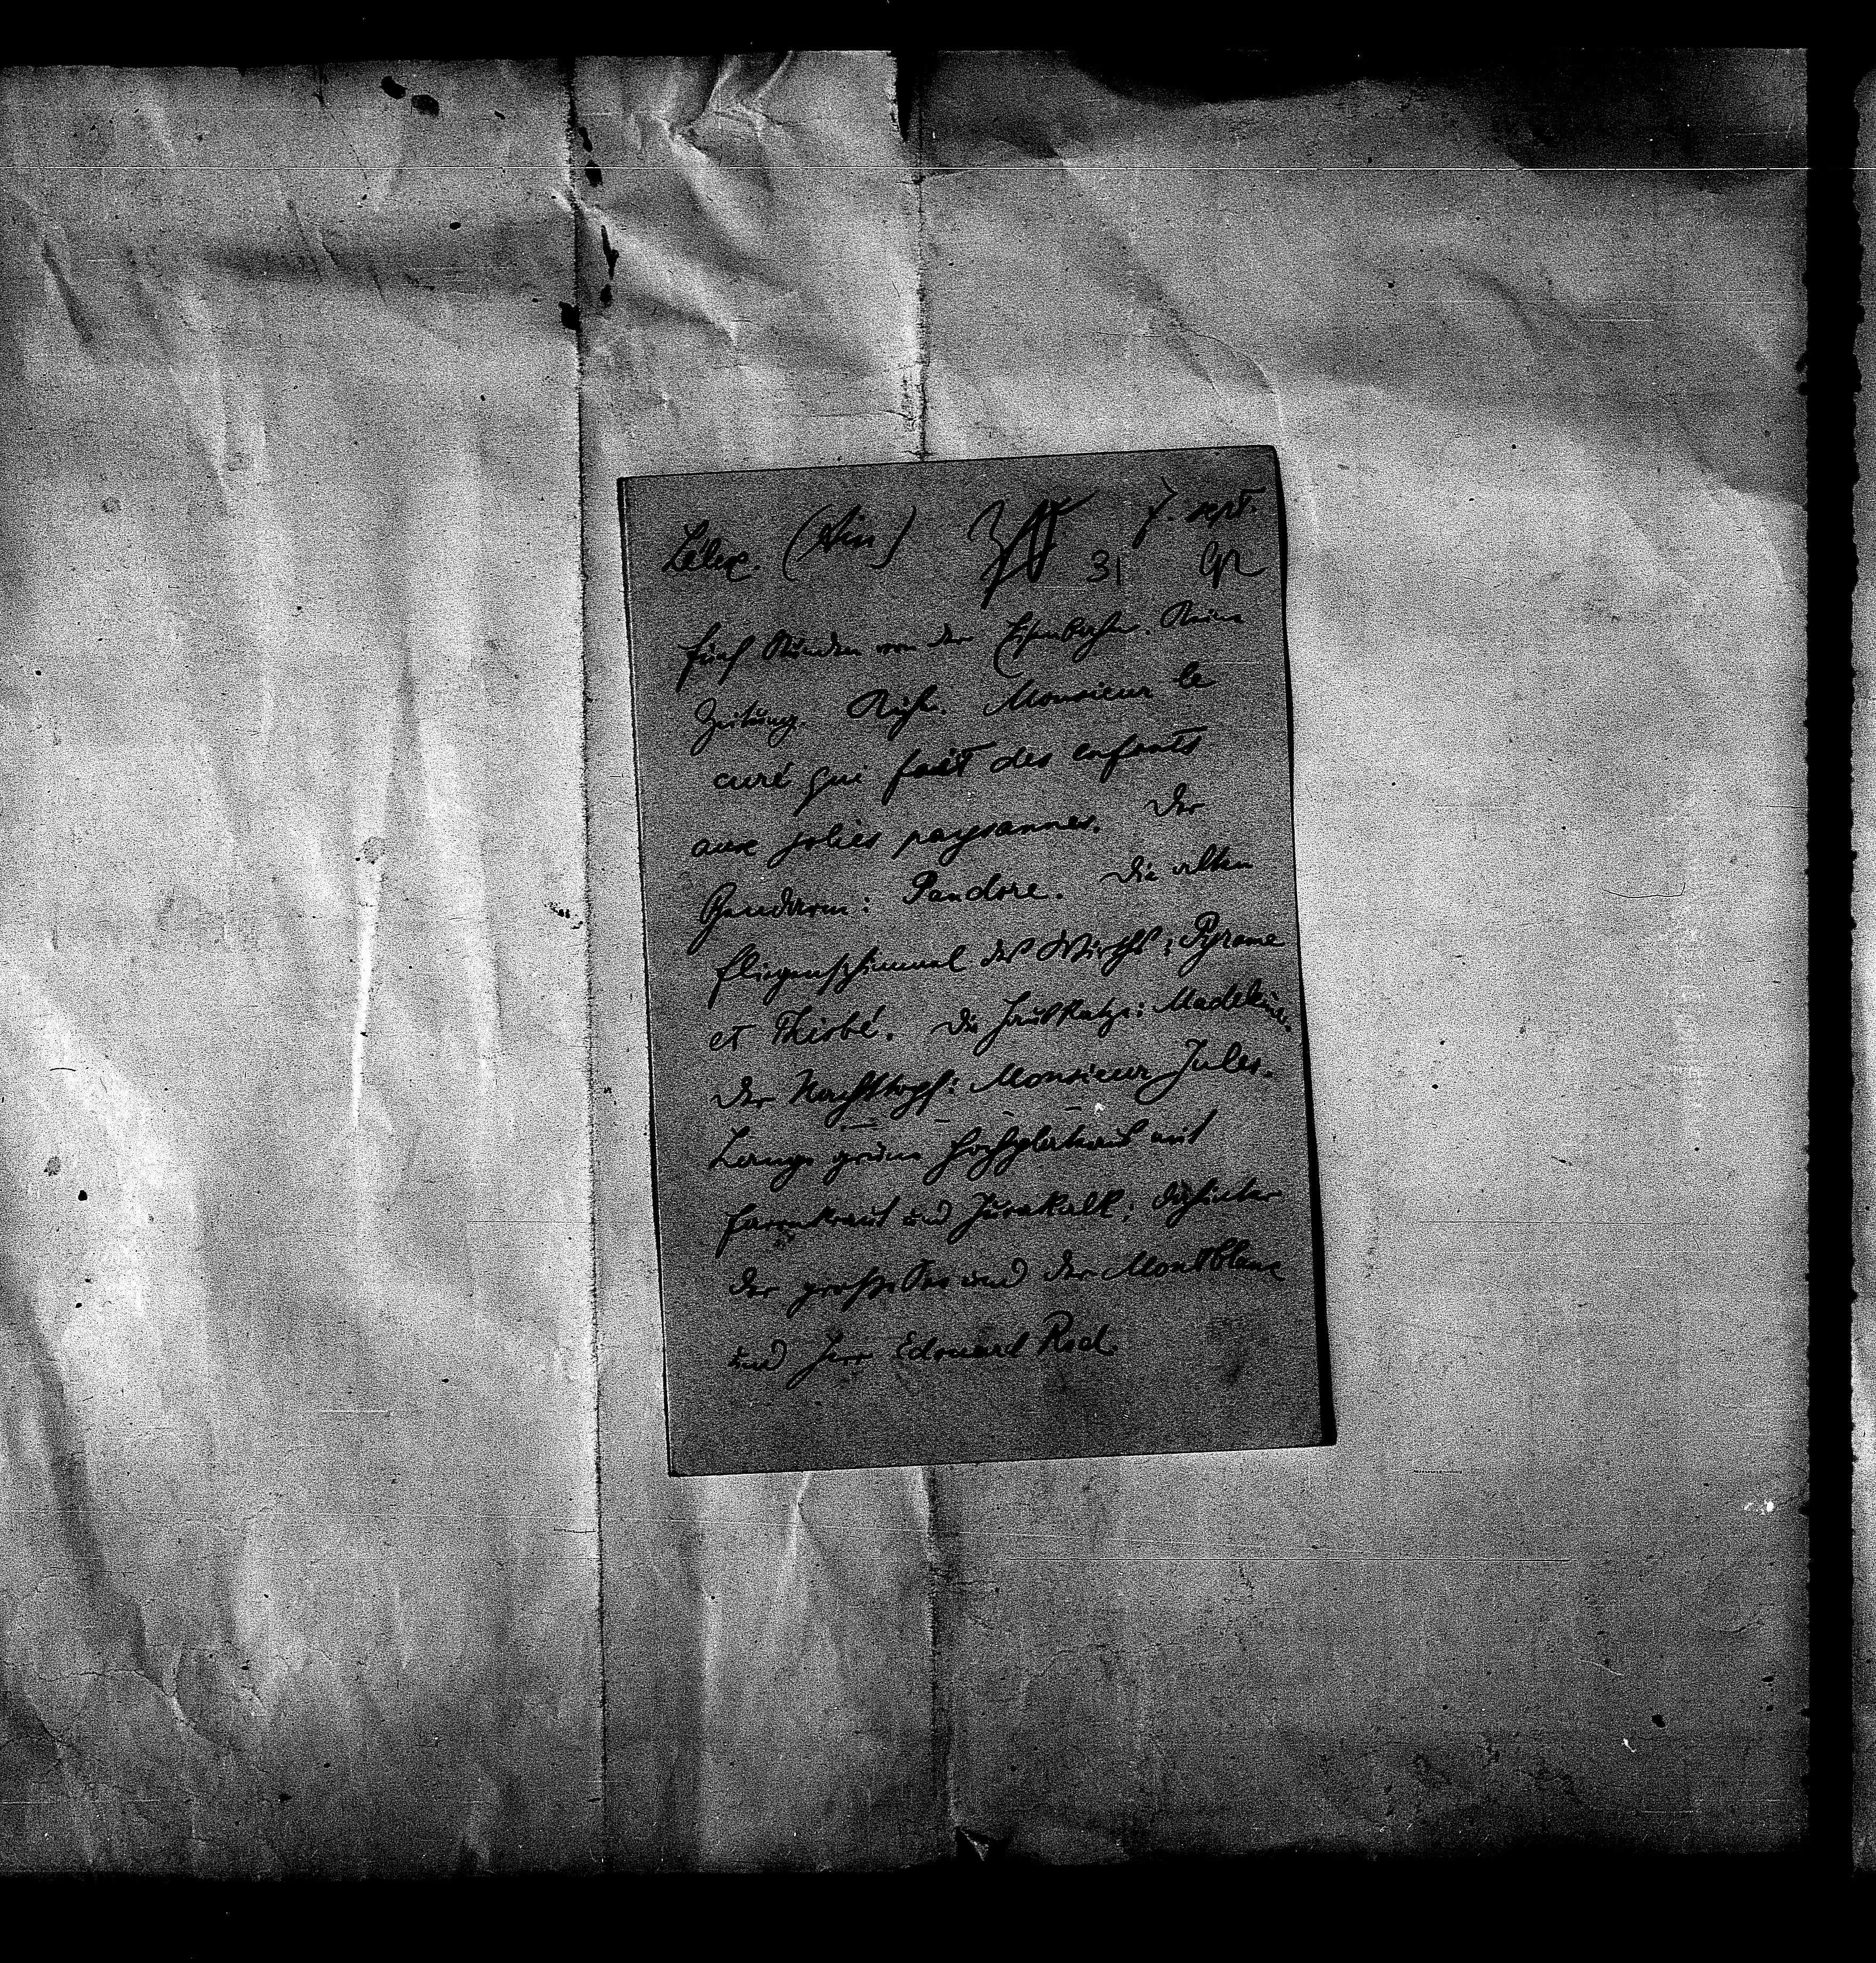 Lélex. (Ain) 7. sept.
31
fünf Stunden von der Eisenbahn. Keine
Zeitung. Ruhe. Monsieur le
curé qui fait des enfants
aux jolies paysannes. Der
Gendarm: Pandore. Die alten
Fliegenschimmel des Wirths: Pyrame
et Thisbé. Die Hauskatze: Madeleine.
Der Nachttopf: Monsieur Jules.
Lange grüne Hochplateaus mit
Farrenkraut und Jurakalk; dahinter
der große See und der Montblanc
und Herr Edouard Rod.